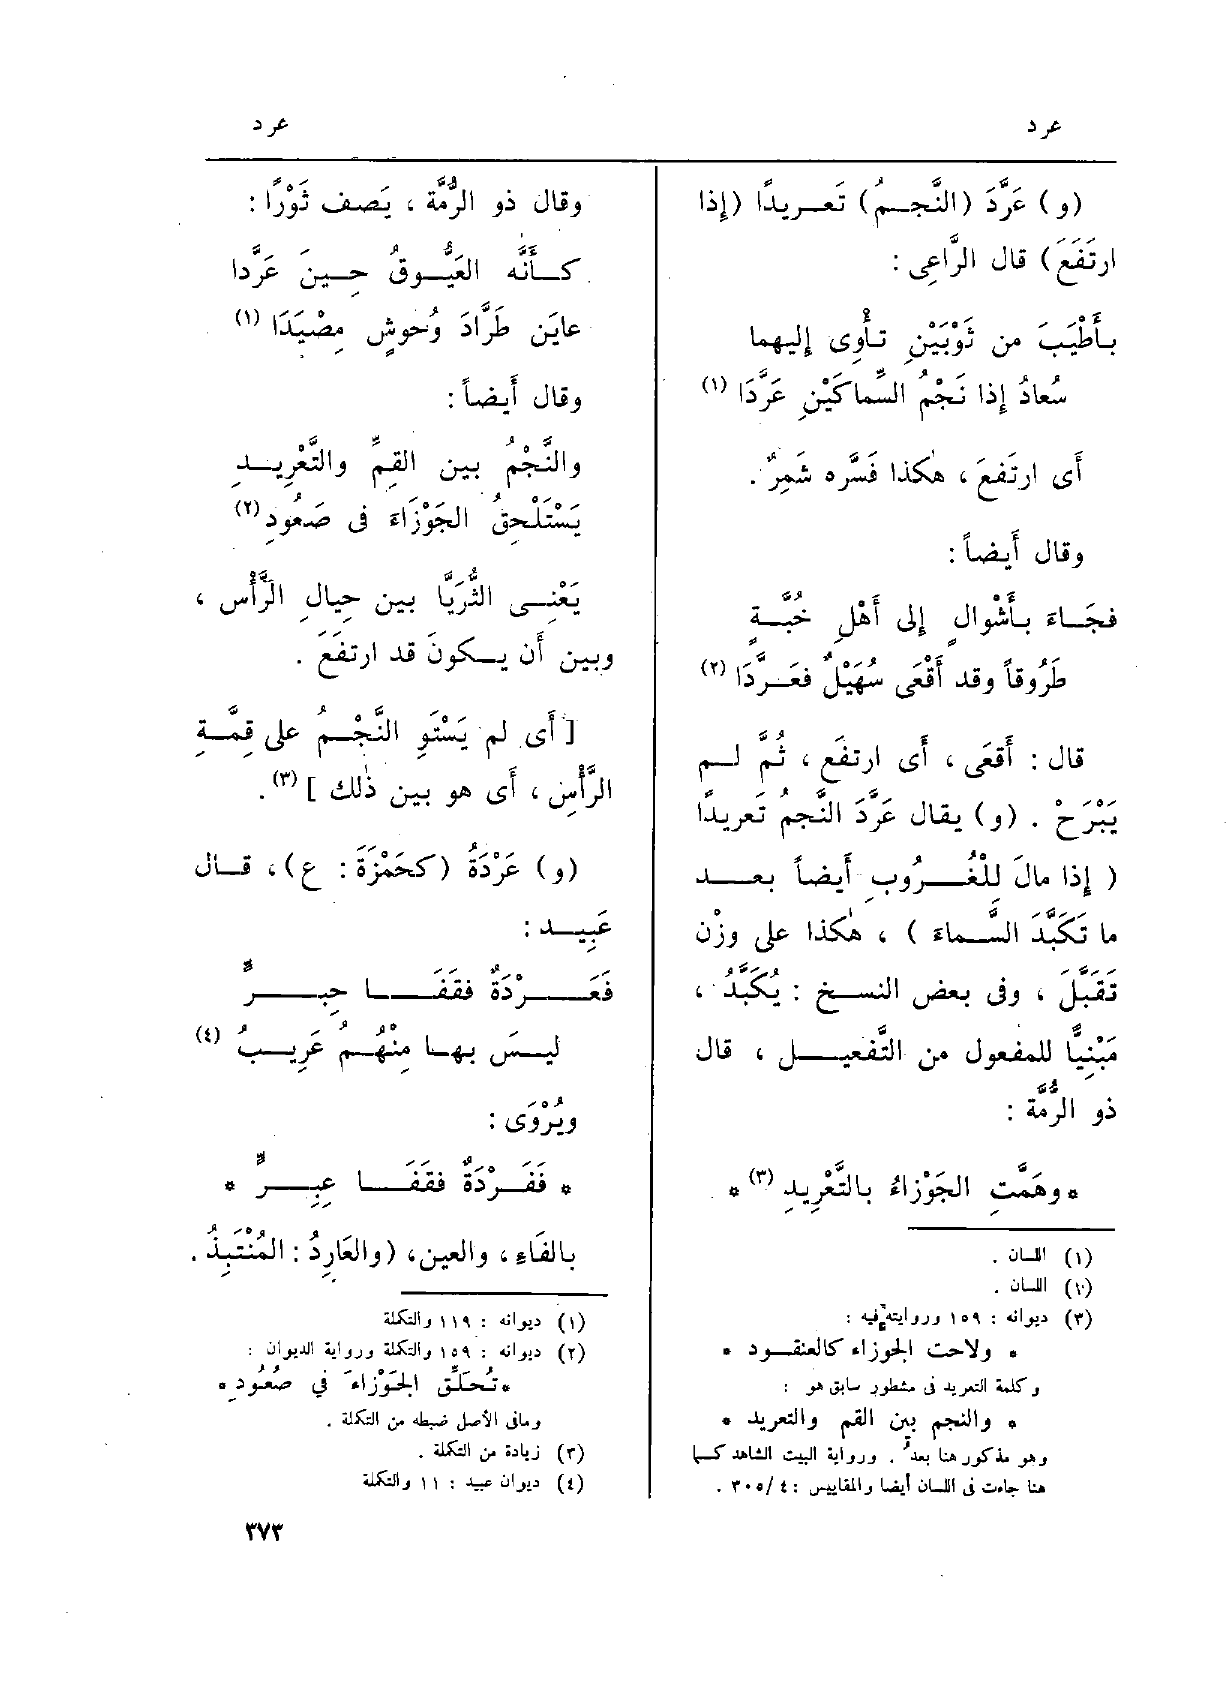 عرد
عرد
(و) عَرَّدَ (النَّجمُ) تَعريدًا (إذا
ارتَفَعَ) قال الرَّاعِى :
بأَطْيَبَ من ثَوْبَيْنِ تأْوِى إليهما
سُعادُ إذا نَجْمُ السِّماكَيْنِ عَرَّدَا (١)
أَى ارتَفَعَ ، هٰكذا فَسَّره شَمِرٌ .
وقال أَيضاً :
فجَاءَ بأَشْوالٍ إلى أَهْلِ خُبَّةٍ
طَرُوقاً وقد أَقْعَى سُهَيْلٌ فعَرَّدَا (٢)
قال : أَقعَى ، أَى ارتفَع ، ثُمَّ لم
يَبْرَحْ . (و) يقال عَرَّدَ النَّجمُ تَعريدًا
( إذا مالَ لِلْغُروبِ أَيضاً بعد
ما تَكَبَّدَ السَّماءَ ) ، هٰكذا على وزْن
تَقَبَّلَ ، وفى بعض النسخ : يُكَبَّدُ ،
مَبْنِيًّا للمفعول من التَّفعيل ، قال
ذو الرُّمَّة :
* وهَمَّتِ الجَوْزاءُ بالتَّعْرِيدِ (٣) *
(١) اللسان .
(٢) اللسان .
(٣) ديوانه : ١٥٩ وروايته فيه :
* ولاحت الجوزاء كالعنقود *
وكلمة التعريد فى مشطور سابق هو :
* والنجم بين القم والتعريد *
وهو مذكور هنا بعدُ . ورواية البيت الشاهد كما
هنا جاءت فى اللسان أيضا والمقاييس : ٤/ ٣٠٥ .
وقال ذو الرُّمَّة ، يَصف ثَوْرًا :
كأَنَّه العَيُّوقُ حِينَ عَرَّدا
عايَن طَرَّادَ وُحوشٍ مِصْيَدَا (١)
وقال أَيضاً :
والنَّجْمُ بين القِمِّ والتَّعْرِيدِ
يَسْتَلْحِقُ الجَوْزَاءَ فى صَعُودِ (٢)
يَعْنِى الثُّرَيَّا بين حِيالِ الرَّأْس ،
وبين أَن يكونَ قد ارتفَعَ .
[ أَى لم يَسْتَوِ النَّجْمُ على قِمَّةِ
الرَّأْسِ ، أَى هو بين ذٰلك ] (٣) .
(و) عَرْدَةُ (كحَمْزَةَ : ع) ، قال
عَبِيد :
فَعَرْدَةٌ فقَفَا حِبِرٍّ
ليسَ بها مِنْهُمُ عَرِيبُ (٤)
ويُرْوَى :
* فَفَرْدَةٌ فقَفَا عِبِرٍّ *
بالفَاءِ ، والعين ، (والعَارِدُ : المُنْتَبِذُ .
(١) ديوانه : ١١٩ والتكملة
(٢) ديوانه : ١٥٩ والتكملة ورواية الديوان :
* تُحَلِّق الجَوْزاءَ في صُعُود *
ومافى الأصل ضبطه من التكملة .
(٣) زيادة من التكملة .
(٤) ديوان عبيد : ١١ والتكملة
٣٧٣